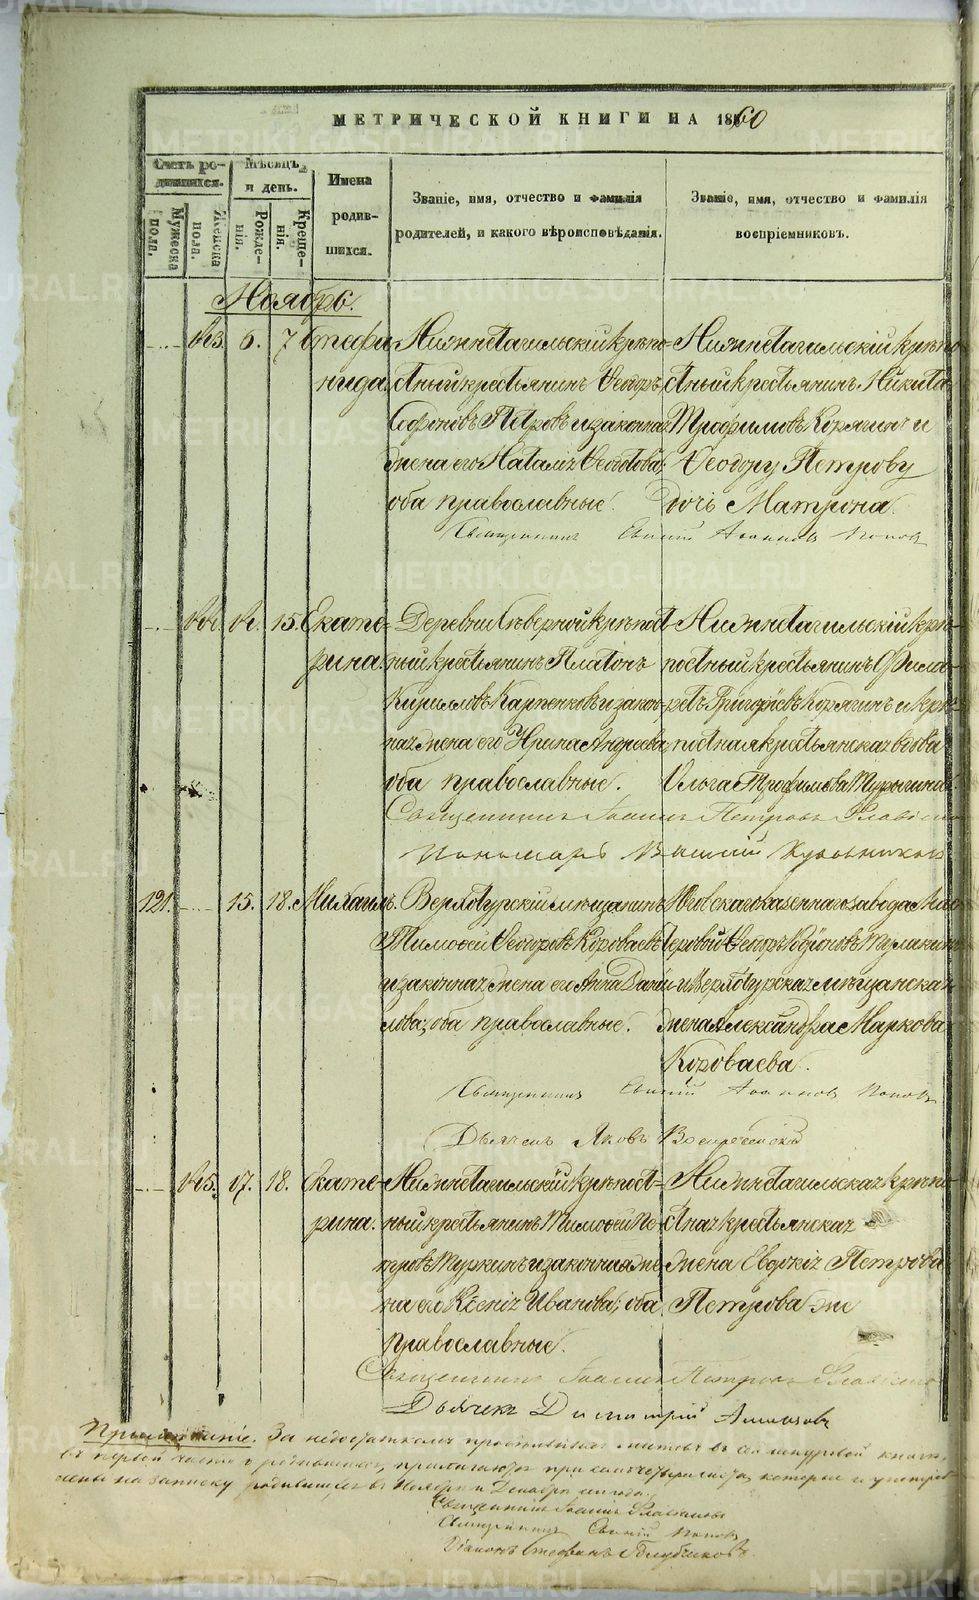 МЕТРИЧЕСКОЙ КНИГИ НА 1860
Счетъ родившихся.
Мужеска пола.
Женска пола.
Мѣсяцъ и день.
Рожденія.
Крещенія.
Имена родившихся.
Званіе, имя, отчество и фамилія родителей, и какого вѣроисповѣданія.
Званіе, имя, отчество и фамилія воспріемниковъ.
Ноябрь.
6. 7 Стефанида
Нижнетагильскій крѣпо-
стный крестьянинъ Ѳеодоръ
Софоновъ Петровъ и законная
жена его Наталія Ѳеодотова;
оба православные.
Нижнетагильскій крѣпо
стный крестьянинъ Никита
Трофимовъ Корягинъ и
Ѳеодору Петрову
дочь Матрона.
Священникъ Евгеній Іоанновъ Поповъ
15. Екате-
рина.
Деревни Сѣверной крѣпост-
ный крестьянинъ Платонъ
Кирилловъ Карпенковъ и закон-
ная жена его Ирина Андреева,
оба православные.
Нижнетагильскій крѣ-
постный крестьянинъ Фила-
ретъ Григорьевъ Корягинъ и крѣ-
постная крестьянская вдова
Ольга Трофимова
Священникъ Іоаннъ Петровъ Славнинъ
Пономарь
121. 15. 18. Михаилъ.
Верхотурскій мѣщанинъ
Тимоѳей Ѳеодоровъ Короваевъ
и законная жена его Анна Дані-
лова; оба православные.
казеннаго завода
Ѳедоръ
и Верхотурская мѣщанская
жена Александра Маркова
Короваева.
Священникъ Евгеній Іоанновъ Поповъ
Дьячекъ Яковъ Воскресенскій
17. 18. Екате-
рина.
Нижнетагильскій крѣпост-
ный крестьянинъ Тимоѳей Пе-
тровъ Туркинъ и законная же-
на его Ксенія Иванова; оба
православные.
Нижнетагильская крѣпо
стная крестьянская
жена Евдокія Петрова
Петрова же
Священникъ Іоаннъ Петровъ Славнинъ
Дьячекъ Димитрій
Примѣчаніе. За недостаткомъ листовъ въ сей шнуровой книгѣ,
въ первой части о родившихся, при семъ четыре листа, которые и
на записку родившихся въ Ноябрѣ и Декабрѣ
Священникъ Іоаннъ Славнинъ
Священникъ Евгеній Поповъ
Діаконъ Стефанъ Голубчиковъ.
METRIKI.GASO-URAL.RU